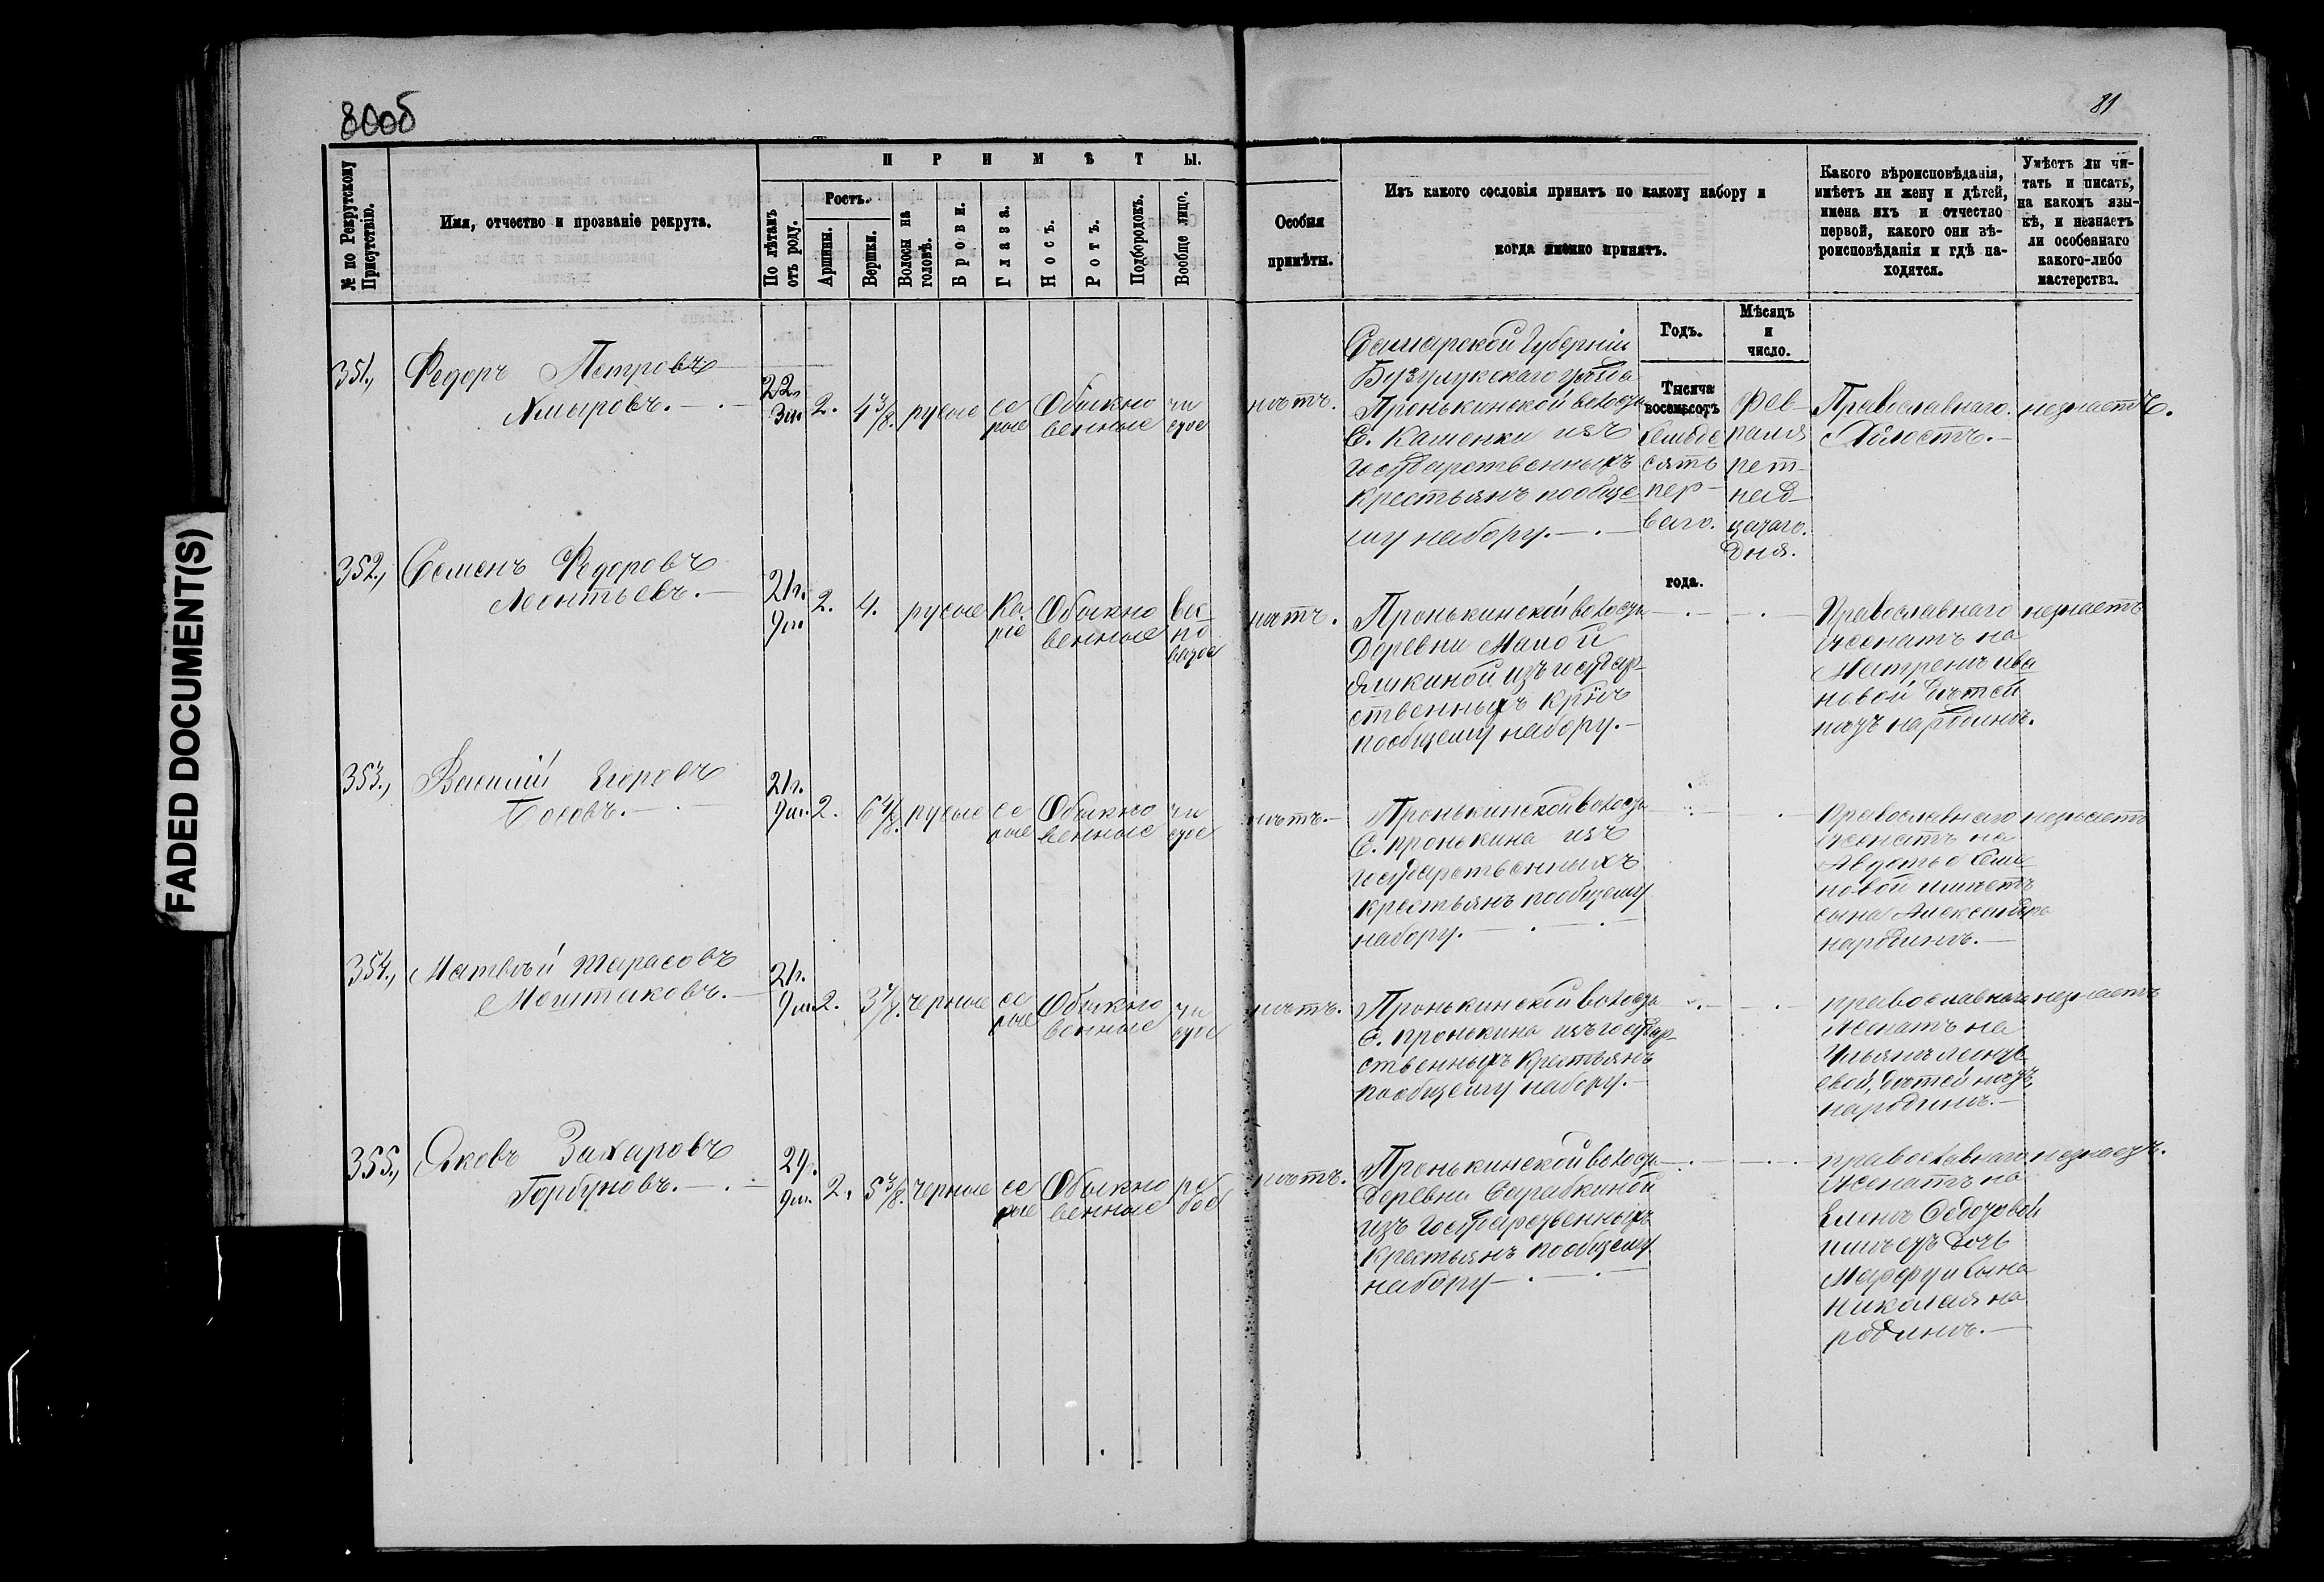 80об
81
FADED DOCUMENT(S)
№ по Рекрутскому
Присутствію.
Имя, отчество и прозваніе рекрута.
ПРИМѢТЫ.
По лѣтамъ
отъ роду.
Ростъ.
Аршины.
Вершки.
Волосы на
головѣ.
Брови.
Глаза.
Носъ.
Ротъ.
Подбородокъ.
Вообще лицо.
Особыя
примѣты.
Изъ какого сословія принятъ по какому набору и
когда именно принятъ.
Какого вѣроисповѣданія,
имѣетъ ли жену и дѣтей,
имена ихъ и отчество
первой, какого они вѣ-
роисповѣданія и гдѣ на-
ходятся.
Умѣетъ ли чи-
тать и писать,
на какомъ язы-
кѣ, и незнаетъ
ли особеннаго
какого-либо
мастерства.
Годъ.
Мѣсяцъ
и
число.
351.,
Федоръ Петровъ
22.
3м
2.
4 3/8.
русые
се
рые
Обыкно
венные
чи
стое
нѣтъ.
Самарской Губерніи
Бузулукскаго уѣзда
Пронькинской волости
С. Каменки изъ
Государственныхъ
крестьянъ пообще
му набору.
Тысяча
восемьсотъ
семьде
сятъ
пер-
ваго.
года.
Фев-
раля
пят-
над-
цатаго.
Дня.
Православнаго.
Холостъ.
незнаетъ.
352.,
Семенъ Федоровъ
Леонтьевъ.
21г.
9м
2.
4.
русые
Ка-
ріе
Обыкно
венные
вес-
но
ватое
нѣтъ.
Пронькинской волости
Деревни Малой
изъ государ-
ственныхъ кр҃нъ
пообщему набору.
Православнаго
женатъ на
Матренѣ ива
новой дѣтей
нѣтъ народинѣ.
незнаетъ
353.,
Василій Егоровъ
21г.
9м.
2.
6 4/8.
русые
се
рые
Обыкно
венные
чи
стое
нѣтъ.
Пронькинской волости
С. пронькина изъ
государственныхъ
крестьянъ пообщему
набору.
Православнаго
женатъ на
Авдотье Семе
новой имѣетъ
сына Александра
народинѣ.
незнаетъ
354.,
Матвѣй Тарасовъ
Моштаковъ.
21г.
9м
2.
3 7/8.
черные
се
рые
Обыкно
венные
чи
стое
нѣтъ.
Пронькинской волости
С. пронькина изъ государ-
ственныхъ крестьянъ
пообщему набору.
православнаго
женатъ на
Ульянѣ
евой, дѣтей нѣтъ,
народинѣ.
незнаетъ
355.,
Яковъ Захаровъ
Горбуновъ.
9м.
2.
5 3/8.
черные
се
рые
Обыкно
венные
ря
бое
нѣтъ.
Пронькинской волости
Деревни Сарабкиной
изъ Государственныхъ
крестьянъ пообщему
набору
православнаго
женатъ на
Еленѣ Федотовой
имѣетъ дочь
Марфу и сына
николая на
родинѣ.
незнаетъ.